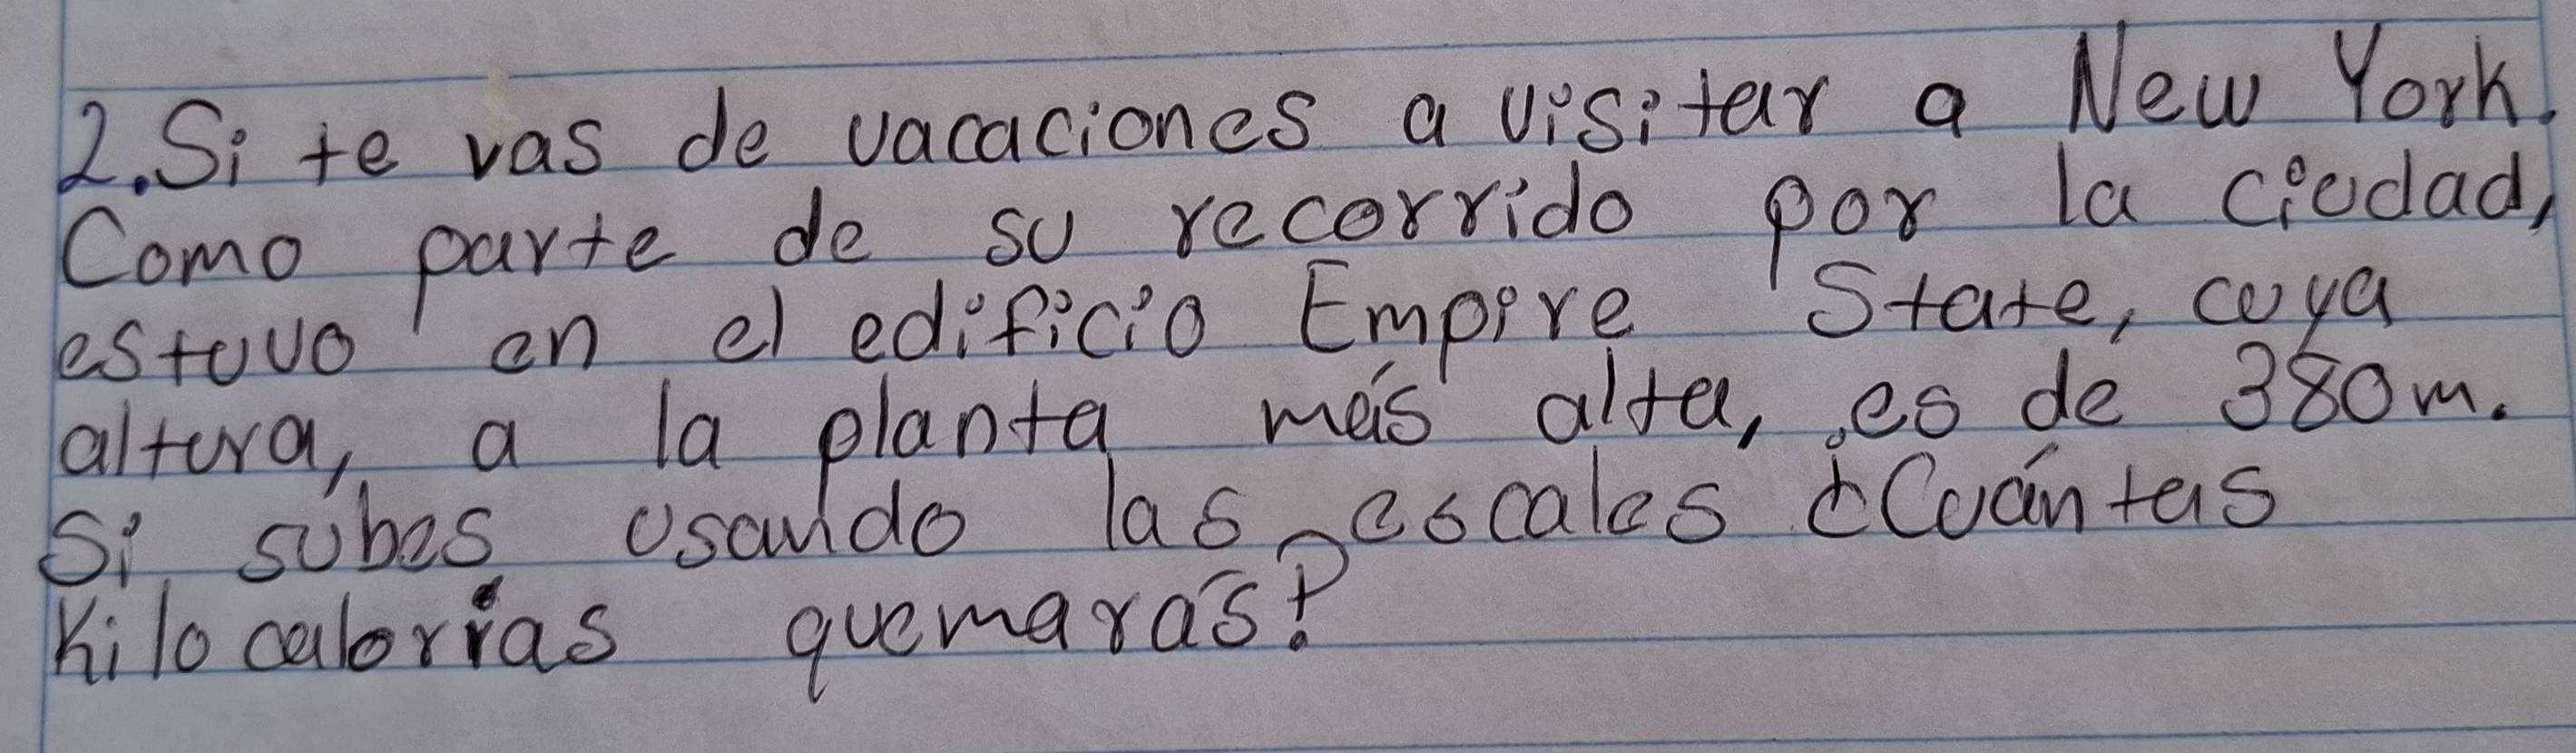 2. Si te vas de vacaciones a visitar a New York.
Como parte de su recorrido por la ciudad,
estuvo en el edificio Empire State, cuya
altura, a la planta más alta, es de 380m.
Si subes usando las escales ¿Cuántas
Kilocalorías quemarás?